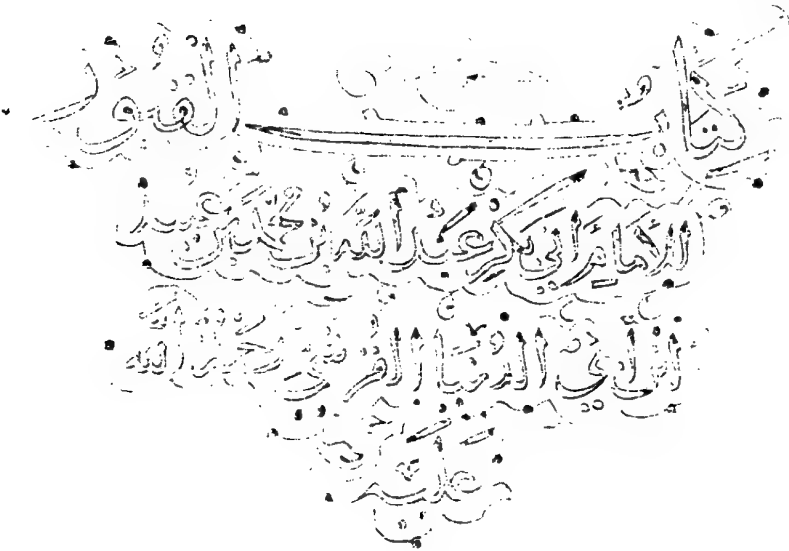 كتاب القبور
للامام ابي بكر عبد الله بن محمد بن عبيد
ابن ابي الدنيا القرشي رحمة الله
عليه